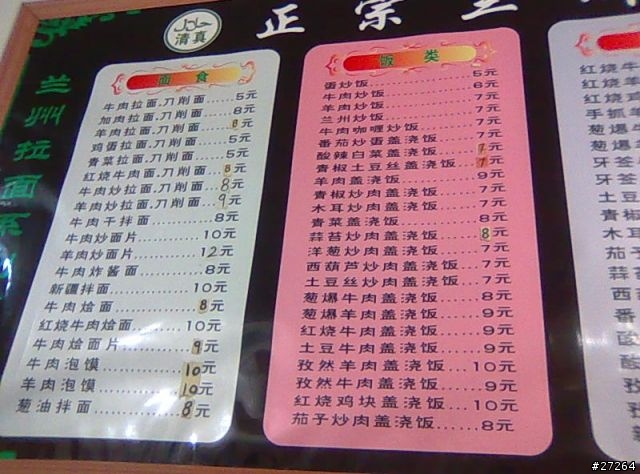 حلال
清真
正宗兰
兰州拉面
面食
牛肉拉面.刀削面......5元
加肉拉面.刀削面......8元
羊肉拉面.刀削面......8元
鸡蛋拉面.刀削面......5元
青菜拉面.刀削面......5元
红烧牛肉面.刀削面...8元
牛肉炒拉面.刀削面...8元
羊肉炒拉面.刀削面...9元
牛肉干拌面............8元
牛肉炒面片............10元
羊肉炒面片............12元
牛肉炸酱面............8元
新疆拌面...............10元
牛肉烩面...............8元
红烧牛肉烩面.........10元
牛肉烩面片............9元
牛肉泡馍...............10元
羊肉泡馍...............10元
葱油拌面...............8元
饭类
蛋炒饭..................5元
牛肉炒饭...............6元
羊肉炒饭...............7元
兰州炒饭...............7元
牛肉咖喱炒饭.........7元
番茄炒蛋盖浇饭......7元
酸辣白菜盖浇饭......7元
青椒土豆丝盖浇饭...7元
羊肉盖浇饭............9元
青椒炒肉盖浇饭......7元
木耳炒肉盖浇饭......7元
青菜盖浇饭............8元
蒜苔炒肉盖浇饭......8元
洋葱炒肉盖浇饭......7元
西葫芦炒肉盖浇饭...7元
土豆丝炒肉盖浇饭...7元
葱爆牛肉盖浇饭......8元
葱爆羊肉盖浇饭......9元
红烧牛肉盖浇饭......9元
土豆牛肉盖浇饭......9元
孜然羊肉盖浇饭......10元
孜然牛肉盖浇饭......9元
红烧鸡块盖浇饭......10元
茄子炒肉盖浇饭......8元
红烧牛
红烧羊
红烧鸡
手抓羊
葱爆
葱爆
牙签
牙签
土豆
青椒
木耳
茄子
蒜苔
西
土
番
酸
#27264